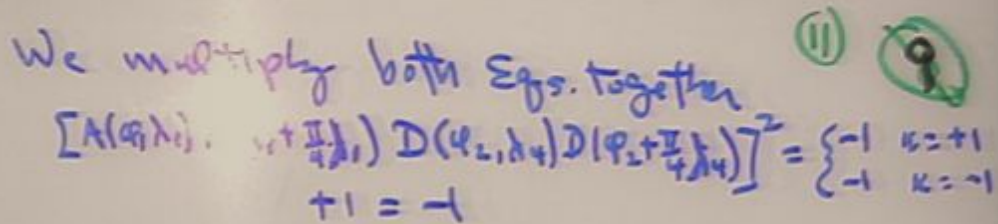 (11)
We multiply both Eqs. together
[A(φ,λ₁) . ,+π/4,λ₁) D(φ₂,λ₄)D(φ₂+π/4,λ₄)]² = {-1 κ=+1
-1 κ=-1
+1 = -1